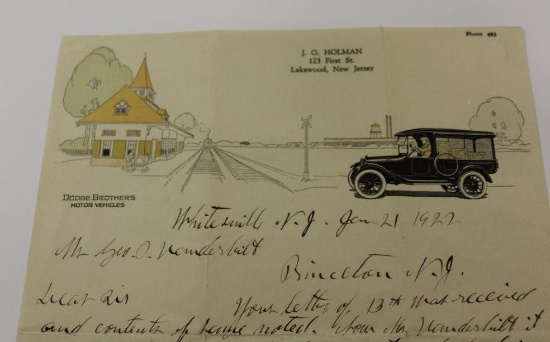 Phone 483
J. G. HOLMAN
123 First St.
Lakewood, New Jersey
DODGE BROTHERS
MOTOR VEHICLES
Whitesville N. J. Jan 21 1922
Mr Geo. D. Vanderbilt
Princeton N. J.
Dear Sir
Your letter of 13th was received
and contents of same noted. Now Mr Vanderbilt it